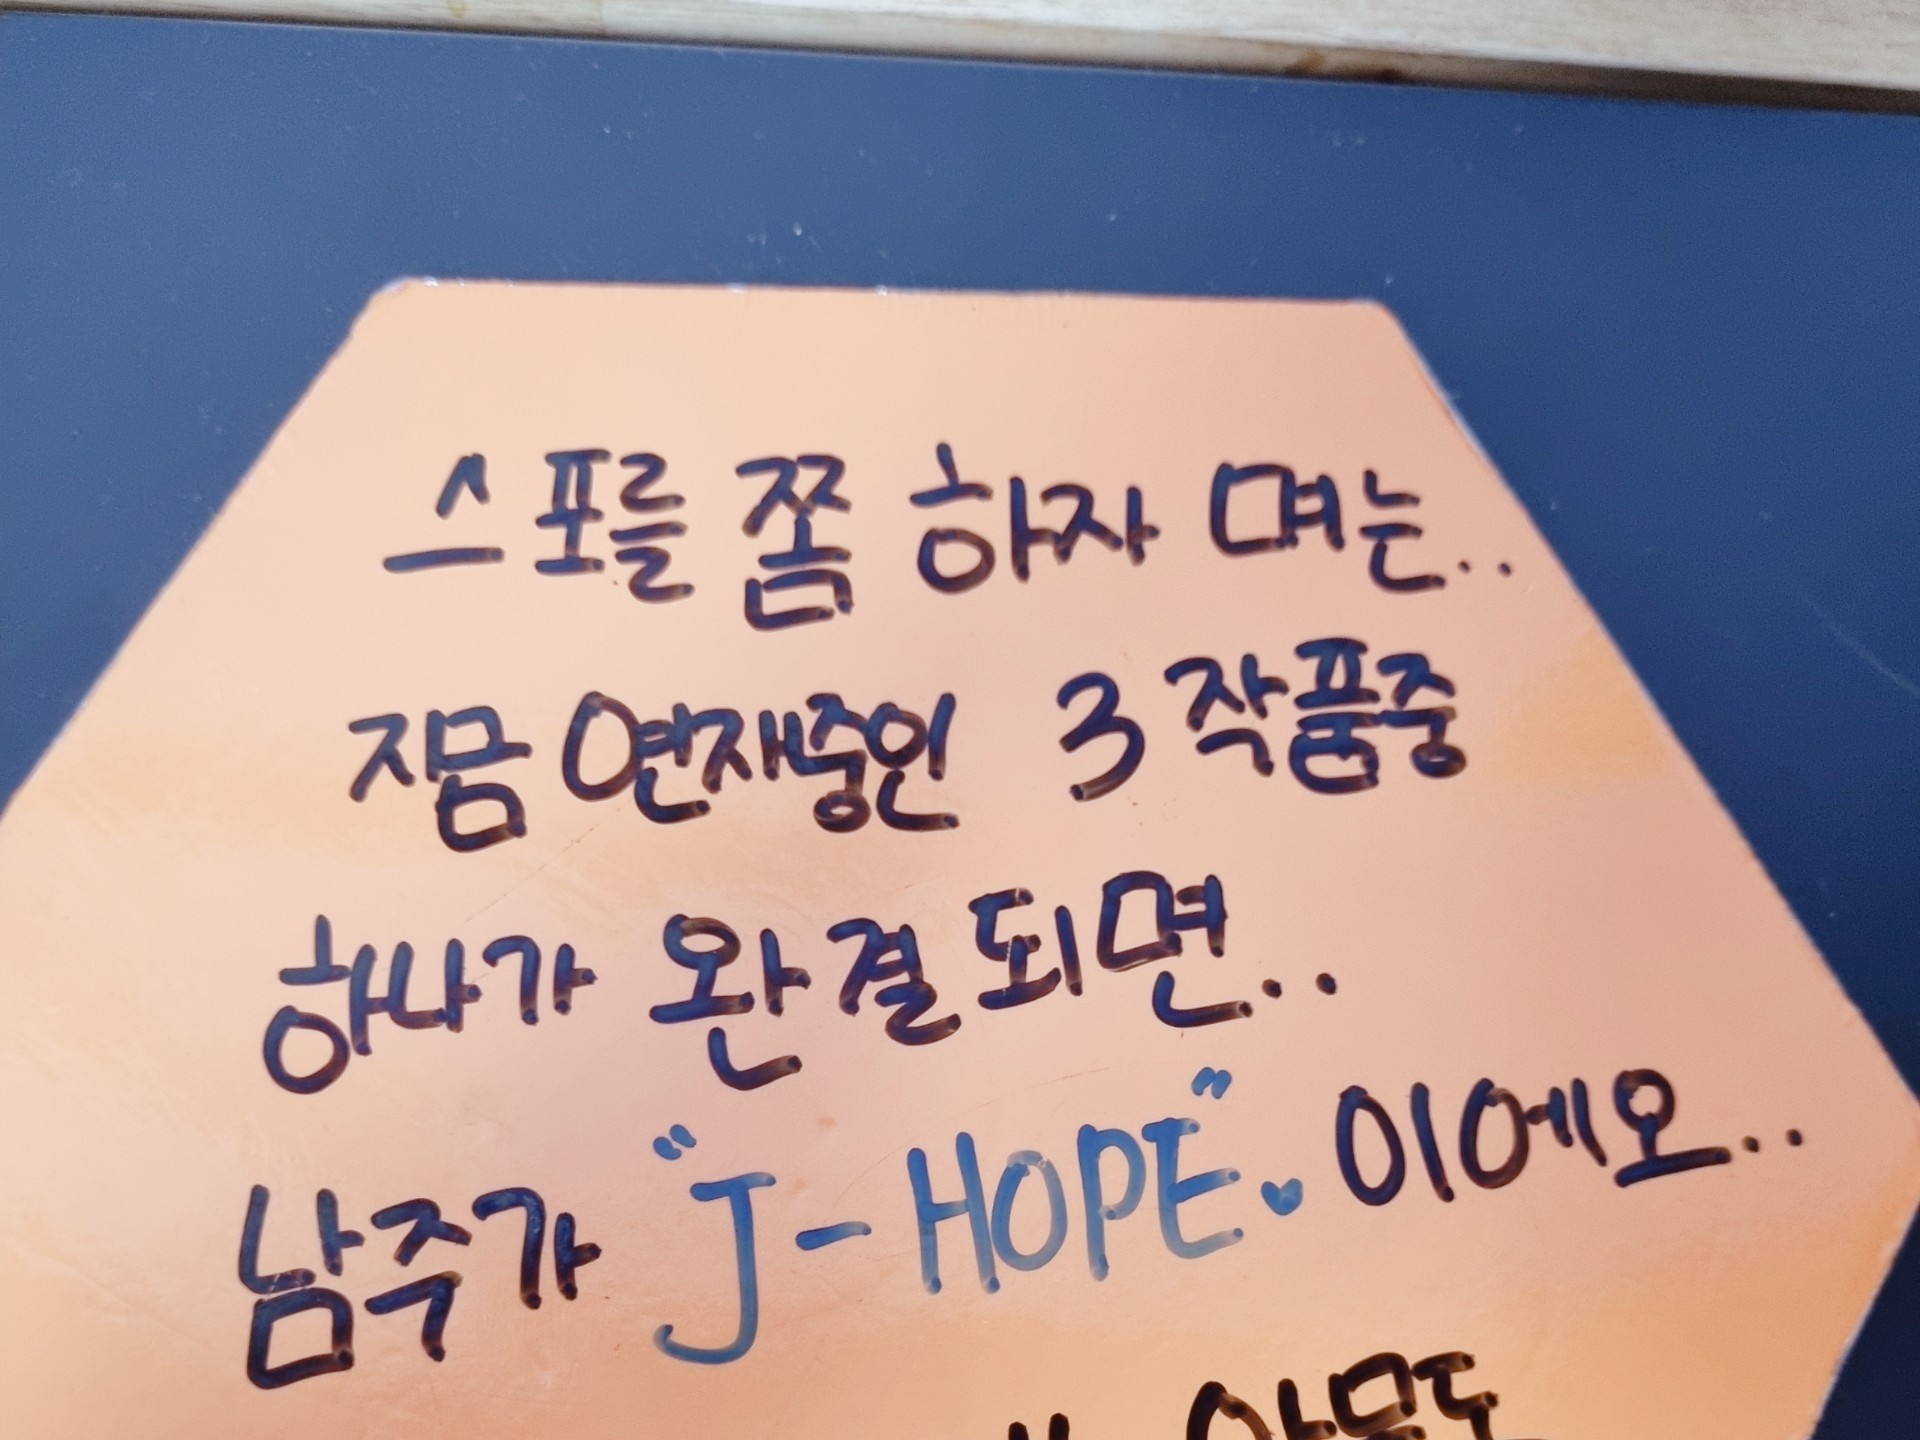 스포를 쫌 하자 며는..
지금 연재중인 3 작품중
하나가 완결되면..
남주가 "J-HOPE"♥이에오..